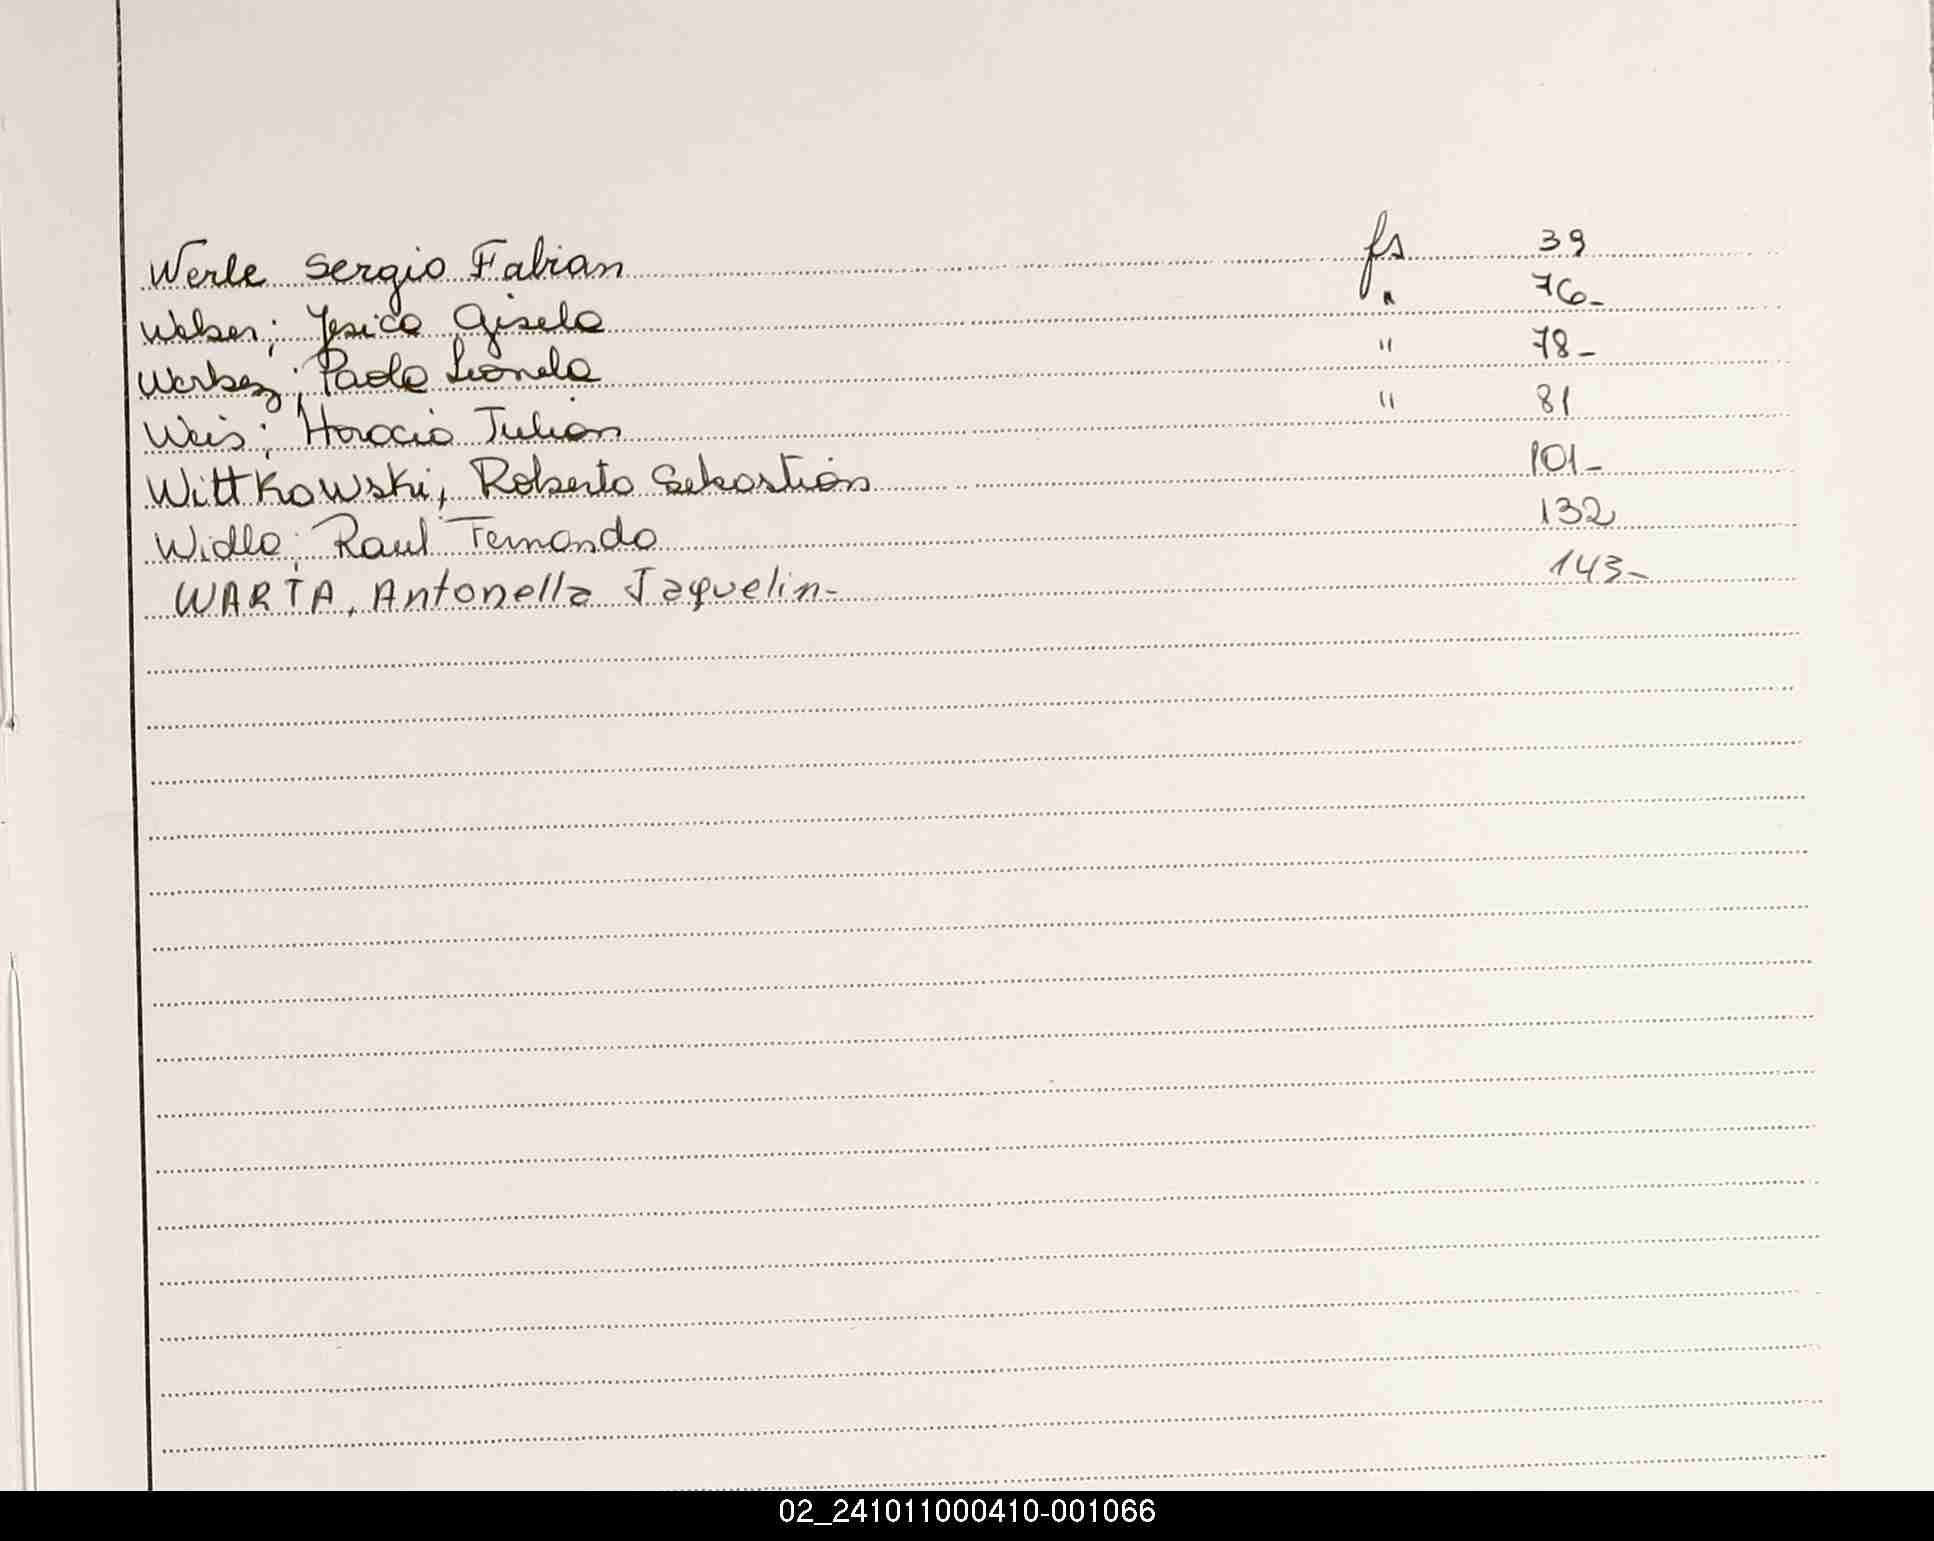 Werle Sergio Fabian fs 39
Weber; Yesica Gisela " 76-
Werbez; Paola Leonela " 78-
Weis; Horacio Julián " 81
Wittkowski, Roberto Sebastián 101-
Widlo; Raul Fernando 132
WARTA, Antonella Jaquelin- 143-
02_241011000410-001066